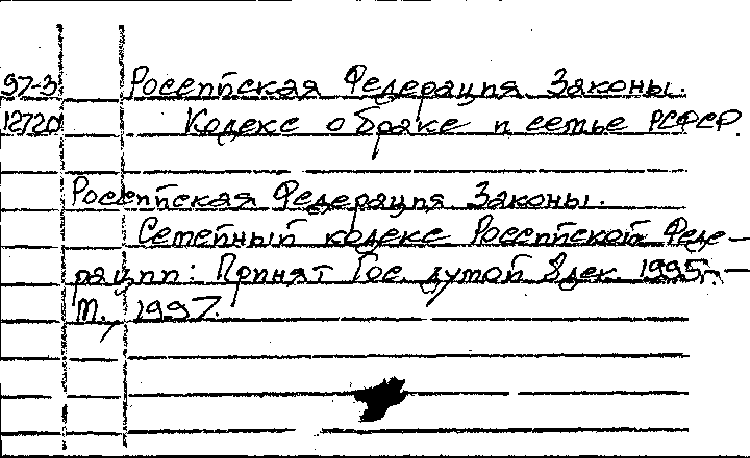 97-3 Российская Федерация Законы.
12720 Кодекс о браке и семье РСФСР.
Российская Федерация Законы.
Семейный кодекс Российской Феде-
рации: Принят Гос. думой 8 дек. 1995г.—
М., 1997.